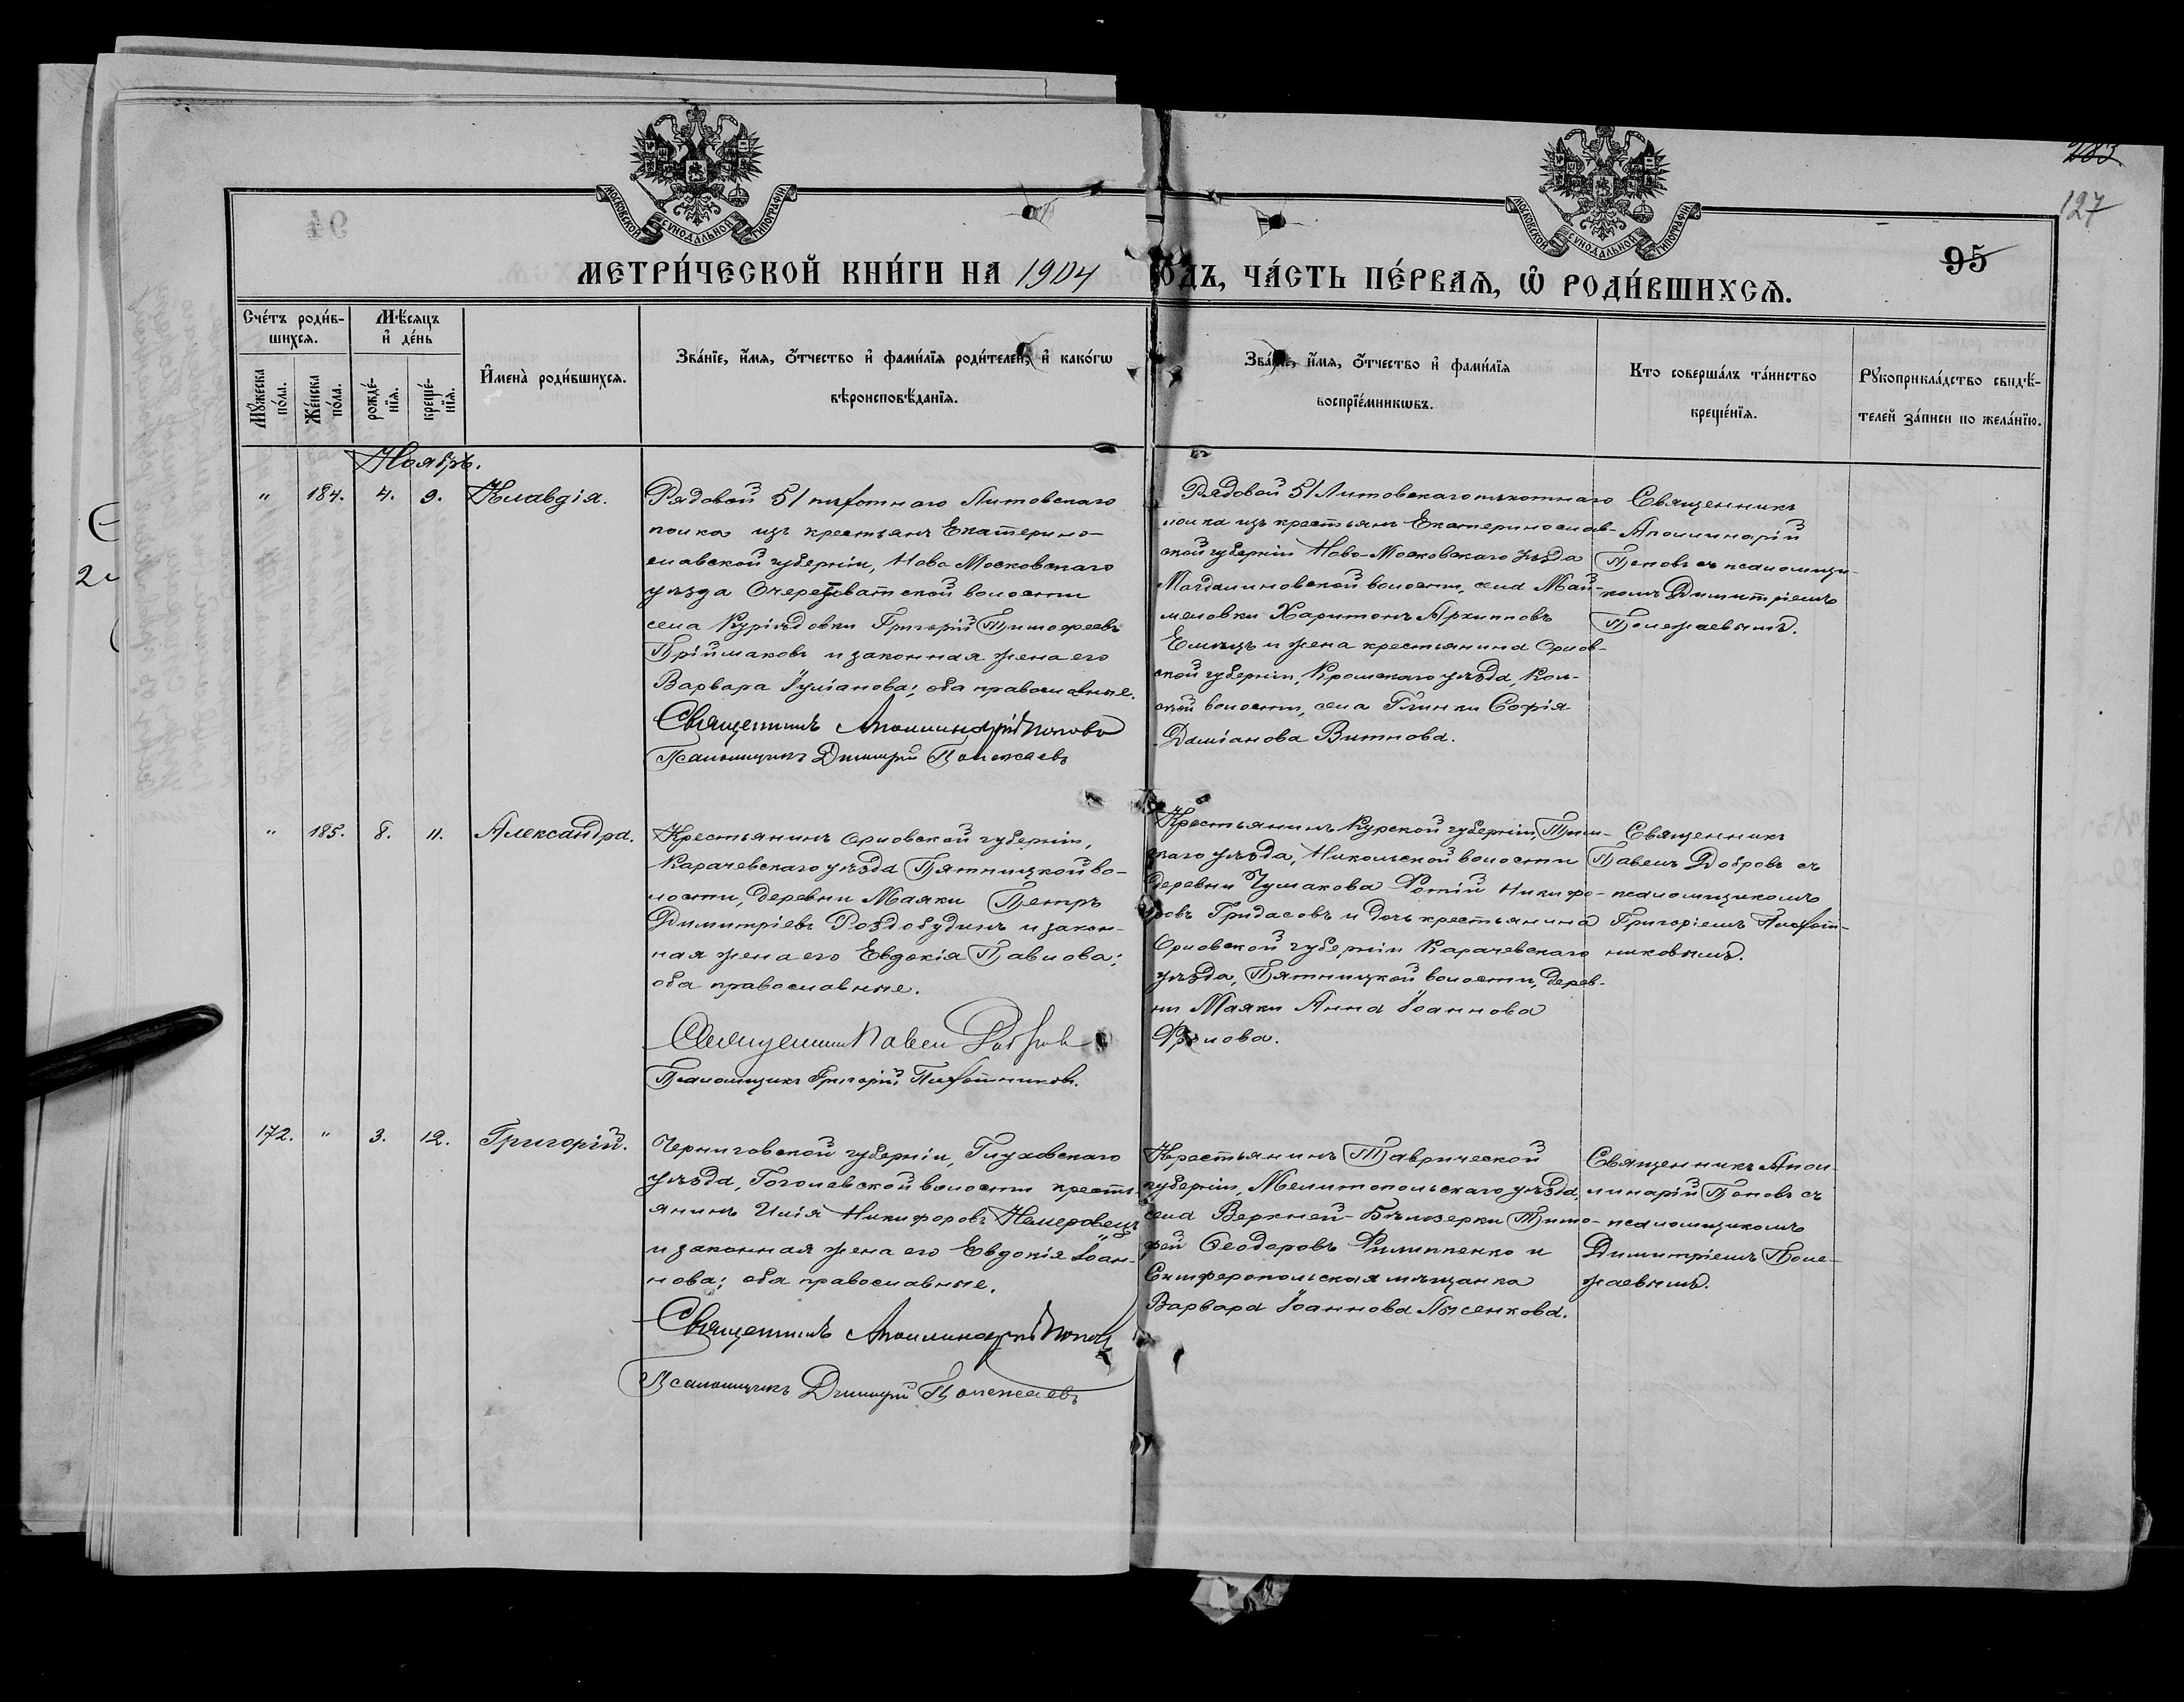 283
127
95
МОСКОВСКОЙ СѴНОДАЛЬНОЙ ТИПОГРАФІИ
МОСКОВСКОЙ СѴНОДАЛЬНОЙ ТИПОГРАФІИ
МЕТРИ́ЧЕСКОЙ КНИ́ГИ НА 1904 ГОДЪ, ЧА́СТЬ ПЕ́РВАѦ, Ѡ҆ РОДИ́ВШИХСѦ.
Сче́тъ роди́в-
шихсѧ.
Мꙋ́жеска по́ла.
Же́нска по́ла.
Мѣ́сѧцъ
и҆ де́нь
рожде́-
нїѧ.
креще́-
нїѧ.
И҆мена̀ роди́вшихсѧ.
Зва́нїе, и҆́мѧ, ѻ҆́тчество и҆ фами́лїѧ роди́телей, и҆ како́гѡ
вѣроисповѣ́данїѧ.
Зва́нїе, и҆́мѧ, ѻ҆́тчество и҆ фами́лїѧ
воспрїе́мникѡвъ.
Кто соверша́лъ та́инство
креще́нїѧ.
Рꙋкоприкла́дство свидѣ́-
телей за́писи по жела́нїю.
Ноябрь.
" 184. 4. 9. Клавдія.
Рядовой 51 пѣхотнаго Литовскаго
полка изъ крестьянъ Екатерино-
славской губерніи, Ново-Московскаго
уѣзда Очеретоватской волости
села Григорій Тимофеевъ
Пріймаковъ и законная жена его
Варвара Іуліанова; оба православные.
Священникъ Аполлинарій Поповъ
Псаломщикъ Димитрій Полежаевъ
Рядовой 51 Литовскаго пѣхотнаго
полка изъ крестьянъ Екатеринослав-
ской губерніи Ново-Московскаго уѣзда
Магдалиновской волости, села Май-
меловки Харитонъ Архиповъ
Емецъ и жена крестьянина Орлов-
ской губерніи, Кромскаго уѣзда, Кол-
ской волости, села Глинки Софія
Даміанова Витнова.
Священникъ
Аполлинарій
Поповъ съ псаломщи-
комъ Димитріемъ
Полежаевымъ.
" 185. 8. 11. Александра.
Крестьянинъ Орловской губерніи,
Карачевскаго уѣзда Пятницкой во-
лости, деревни Маяки Петръ
Димитріевъ Роздобудинъ и закон-
ная жена его Евдокія Павлова;
оба православные.
Священникъ Павелъ Добровъ
Псаломщикъ Григорій Плотниковъ.
Крестьянинъ Курской губерніи, Тим-
скаго уѣзда, Никольской волости
деревни Чумакова Фотій Никифо-
ровъ Гридасовъ и дочь крестьянина
Орловской губерніи Карачевскаго
уѣзда, Пятницкой волости, дерев-
ни Маяки Анна Іоаннова
Фролова.
Священникъ
Павелъ Добровъ съ
псаломщикомъ
Григоріемъ Плот-
никовымъ.
172. " 3. 12. Григорій.
Черниговской губерніи, Глуховскаго
уѣзда, Гоголевской волости кресть-
янинъ Илія Никифоровъ Немеровецъ
и законная жена его Евдокія Іоан-
нова; оба православные.
Священникъ Аполлинарій Поповъ
Псаломщикъ Димитрій Полежаевъ
Крестьянинъ Таврической
губерніи, Мелитопольскаго уѣзда,
села Верхней-Бѣлозерки Тимо-
фей Ѳеодоровъ Филиппенко и
Симферопольская мѣщанка
Варвара Іоаннова Лысенкова.
Священникъ Апол-
линарій Поповъ съ
псаломщикомъ
Димитріемъ Поле-
жаевымъ.